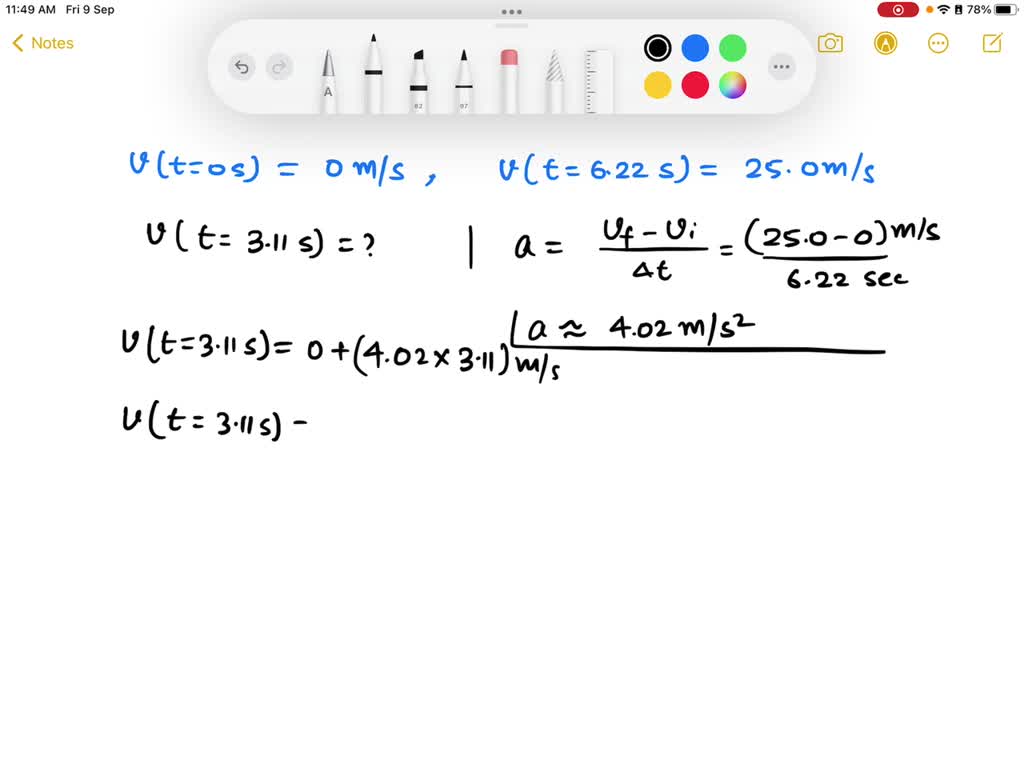 11:49 AM Fri 9 Sep
78%
Notes
A
82
97
v(t=0s) = 0 m/s , v(t = 6.22 s) = 25.0m/s
v(t= 3.11 s) = ? | a = (vf - vi)/Δt = (25.0-0) m/s / 6.22 sec
a ≈ 4.02 m/s²
v(t=3.11 s) = 0 + (4.02 × 3.11) m/s
v(t = 3.11s) -